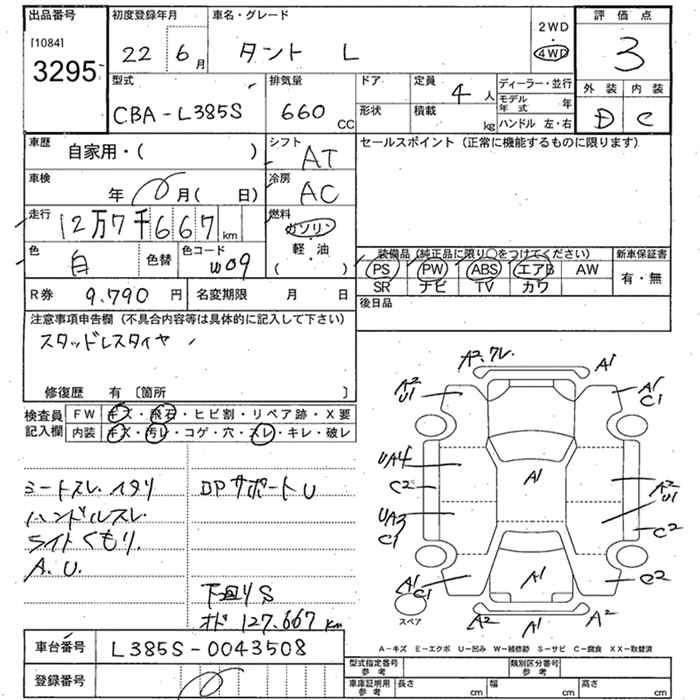 出品番号
[1084]
3295
初度登録年月
22 6月
車名・グレード
タント L
2WD
・
4WD
評価点
3
型式
CBA-L385S
排気量
660 CC
ドア
形状
定員
4人
積載
kg
ディーラー・並行
モデル年式 年
ハンドル 左・右
外装 内装
D C
車歴
自家用・( )
車検
年 月( 日)
走行
12万7千667km
色
白
色替
色コード
W09
シフト
AT
冷房
AC
燃料
ガソリン
・
軽油
( )
セールスポイント(正常に機能するものに限ります)
装備品(純正品に限り○をつけてください)
PS PW ABS エアB AW
SR ナビ TV カワ
新車保証書
有・無
R券 9.790円
名変期限 月 日
後日品
注意事項申告欄(不具合内容等は具体的に記入して下さい)
スタッドレスタイヤ
修復歴 有 〔箇所 〕
検査員記入欄
FW キズ・飛石・ヒビ割・リペア跡・X要
内装 キズ・汚レ・コゲ・穴・スレ・キレ・破レ
シートスレ.イタリ
ハンドルスレ.
ライトくもり.
A.U.
DPサポートU
下廻りS
オド127.667km
A2.ワレ A1
A2 U1 A1 C1
UA4 A1
C2 A2 U1
UA3 C1 C2
A1 C1 A1 C2
スペア
A2 A1 A2
A-キズ E-エクボ U-凹み W-補修跡 S-サビ C-腐食 XX-取替済
車台番号 L385S-0043508
登録番号
型式指定番号 参考
類別区分番号 参考
車庫証明用 参考
長さ cm
幅 cm
高さ cm